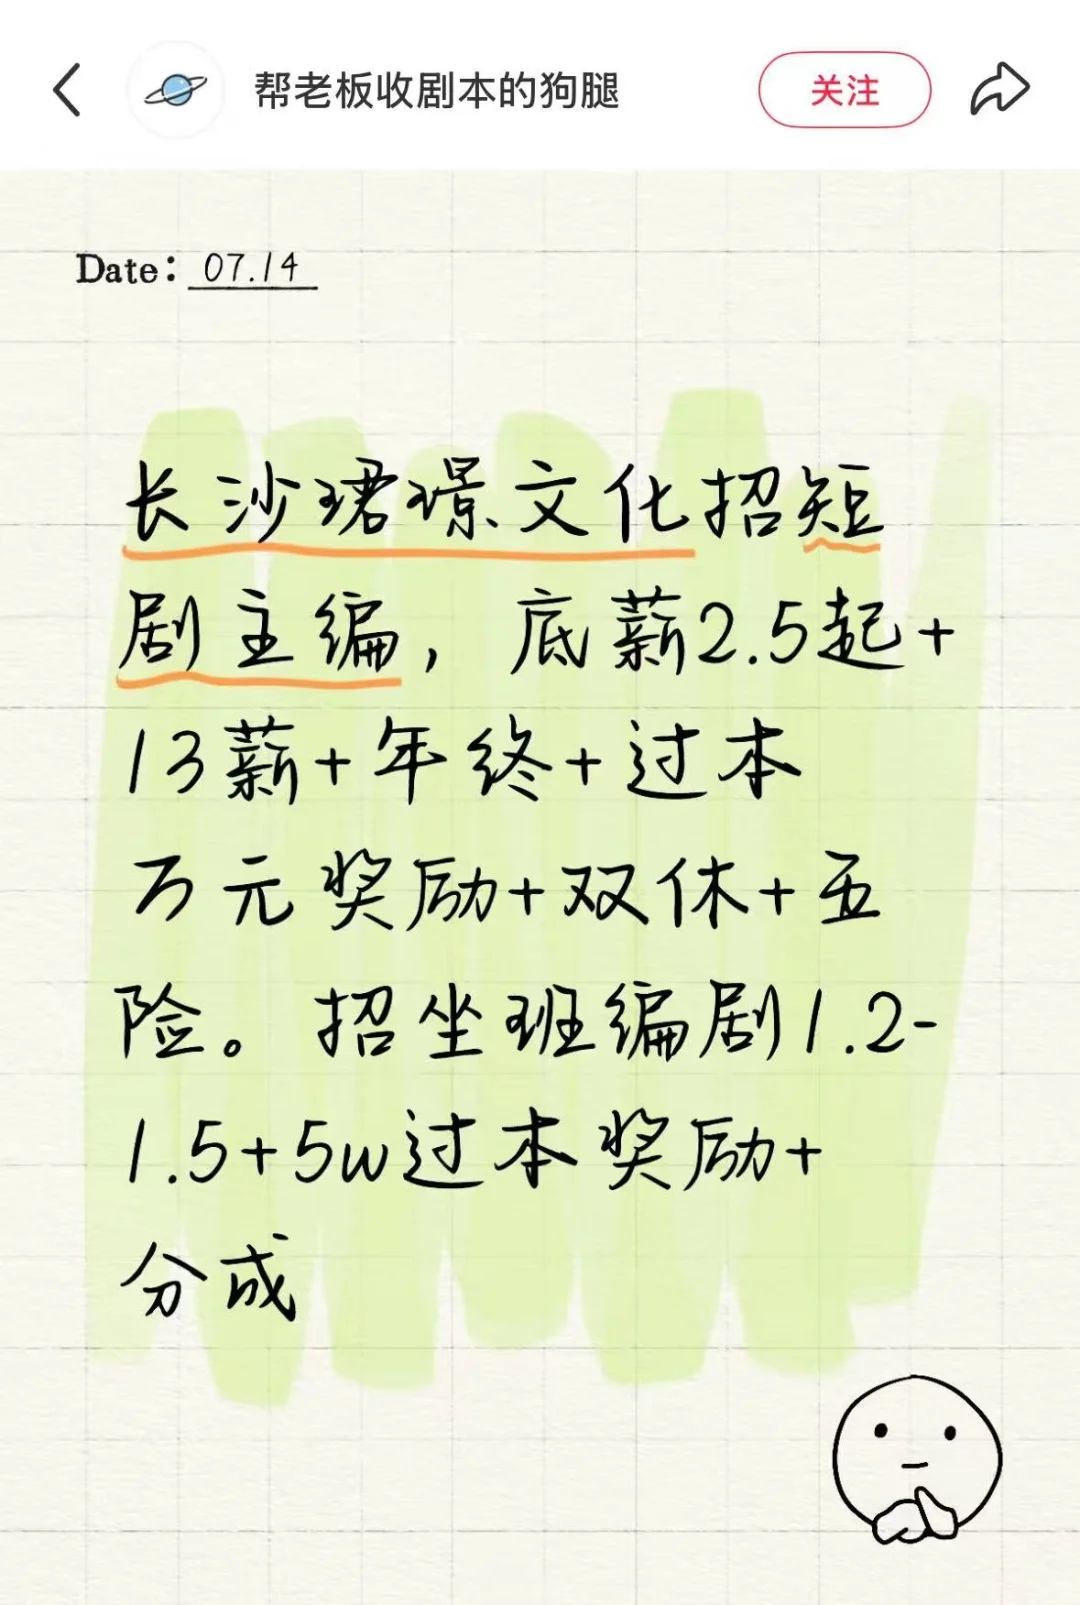 帮老板收剧本的狗腿
关注
Date: 07.14
长沙珺璟文化招短
剧主编，底薪2.5起+
13薪+年终+过本
万元奖励+双休+五
险。招坐班编剧1.2-
1.5+5w过本奖励+
分成